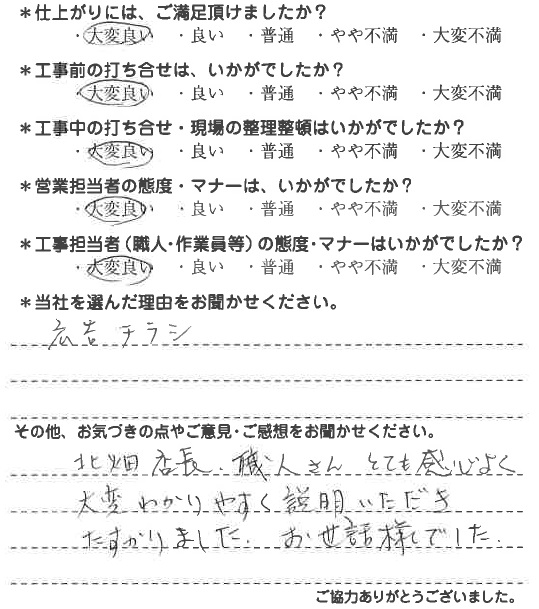 ＊仕上がりには、ご満足頂けましたか？
・大変良い ・良い ・普通 ・やや不満 ・大変不満
＊工事前の打ち合せは、いかがでしたか？
・大変良い ・良い ・普通 ・やや不満 ・大変不満
＊工事中の打ち合せ・現場の整理整頓はいかがでしたか？
・大変良い ・良い ・普通 ・やや不満 ・大変不満
＊営業担当者の態度・マナーは、いかがでしたか？
・大変良い ・良い ・普通 ・やや不満 ・大変不満
＊工事担当者（職人・作業員等）の態度・マナーはいかがでしたか？
・大変良い ・良い ・普通 ・やや不満 ・大変不満
＊当社を選んだ理由をお聞かせください。
広告チラシ
その他、お気づきの点やご意見・ご感想をお聞かせください。
北畑店長、職人さん とても感じよく
大変わかりやすく説明いただき
たすかりました。お世話様でした。
ご協力ありがとうございました。